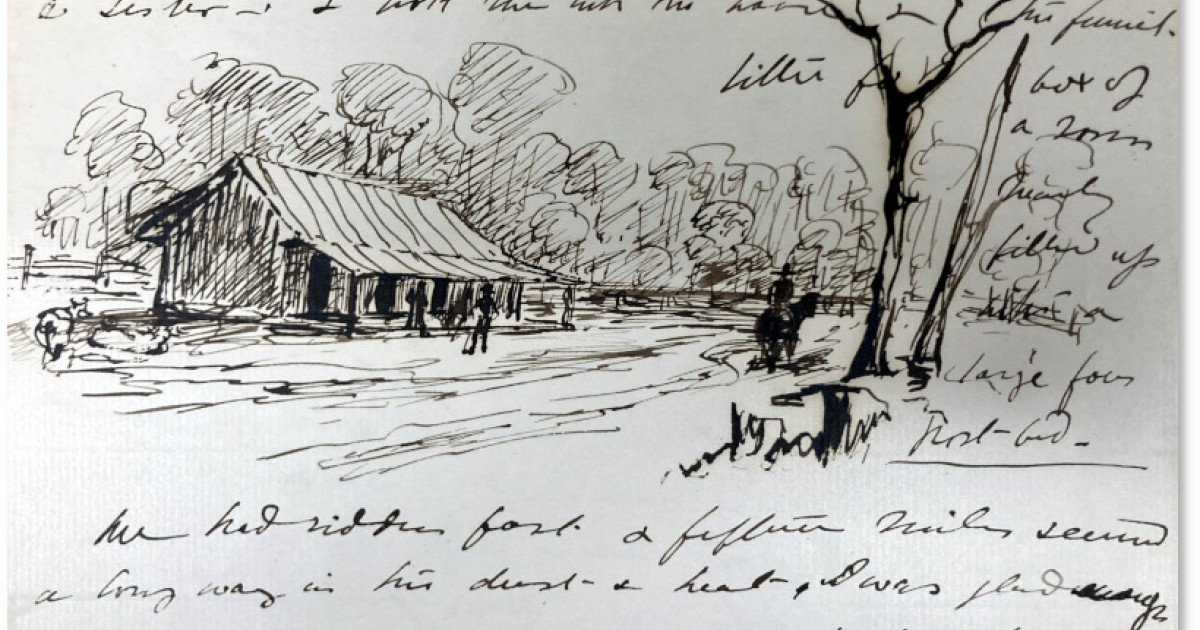 a sister - & I took the
little
box of
a room
nearly
filled up
with a
large four
Post-bed -
We had ridden fast & fifteen miles seemed
a long way in the dust & heat, I was glad enough